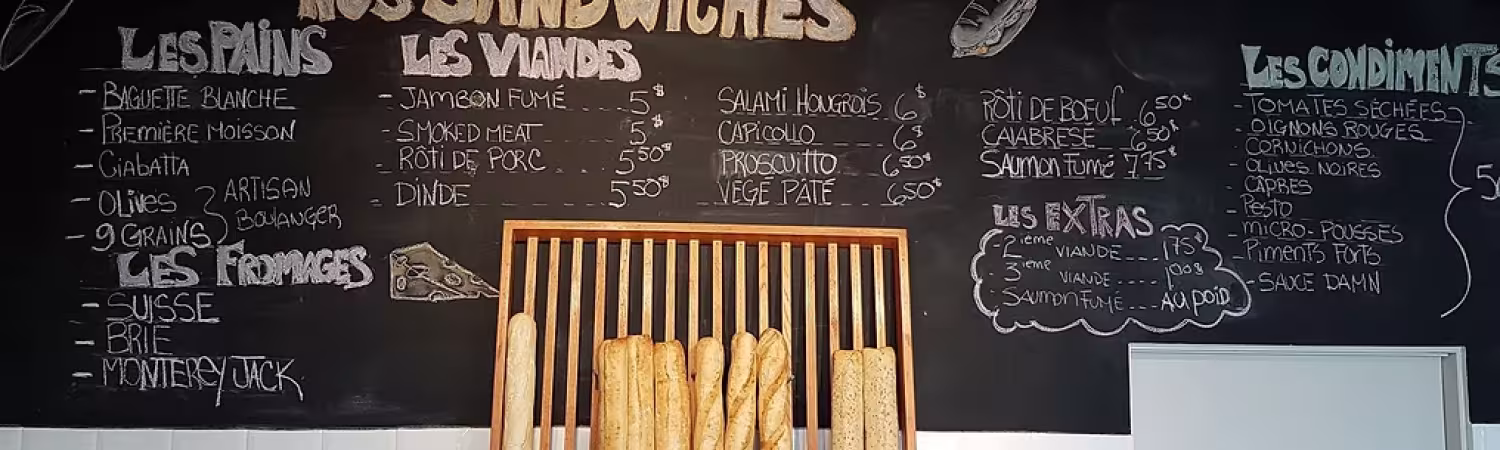 NOS SANDWICHES
LES PAINS
- BAGUETTE BLANCHE
- PREMIÈRE MOISSON
- CIABATTA
- OLIVES
- 9 GRAINS
ARTISAN
BOULANGER
LES FROMAGES
- SUISSE
- BRIE
- MONTEREY JACK
LES VIANDES
- JAMBON FUMÉ .... 5$
- SMOKED MEAT .... 5$
- RÔTI DE PORC ... 5 50$
- DINDE ... 5 50$
SALAMI HONGROIS 6$
CAPICOLLO 6$
PROSCUITTO 6 50$
VEGE PÂTÉ 6 50$
RÔTI DE BOEUF 6 50$
CALABRESE 6 50$
SAUMON FUMÉ 7 75$
LES EXTRAS
- 2ième VIANDE .... 1 75$
- 3ième VIANDE .... 1 00$
- SAUMON FUMÉ ... AU POID
LES CONDIMENTS
- TOMATES SÉCHÉES
- OIGNONS ROUGES
- CORNICHONS
- OLIVES NOIRES
- CÂPRES
- PESTO
- MICRO-POUSSES
- PIMENTS FORTS
- SAUCE DAMN